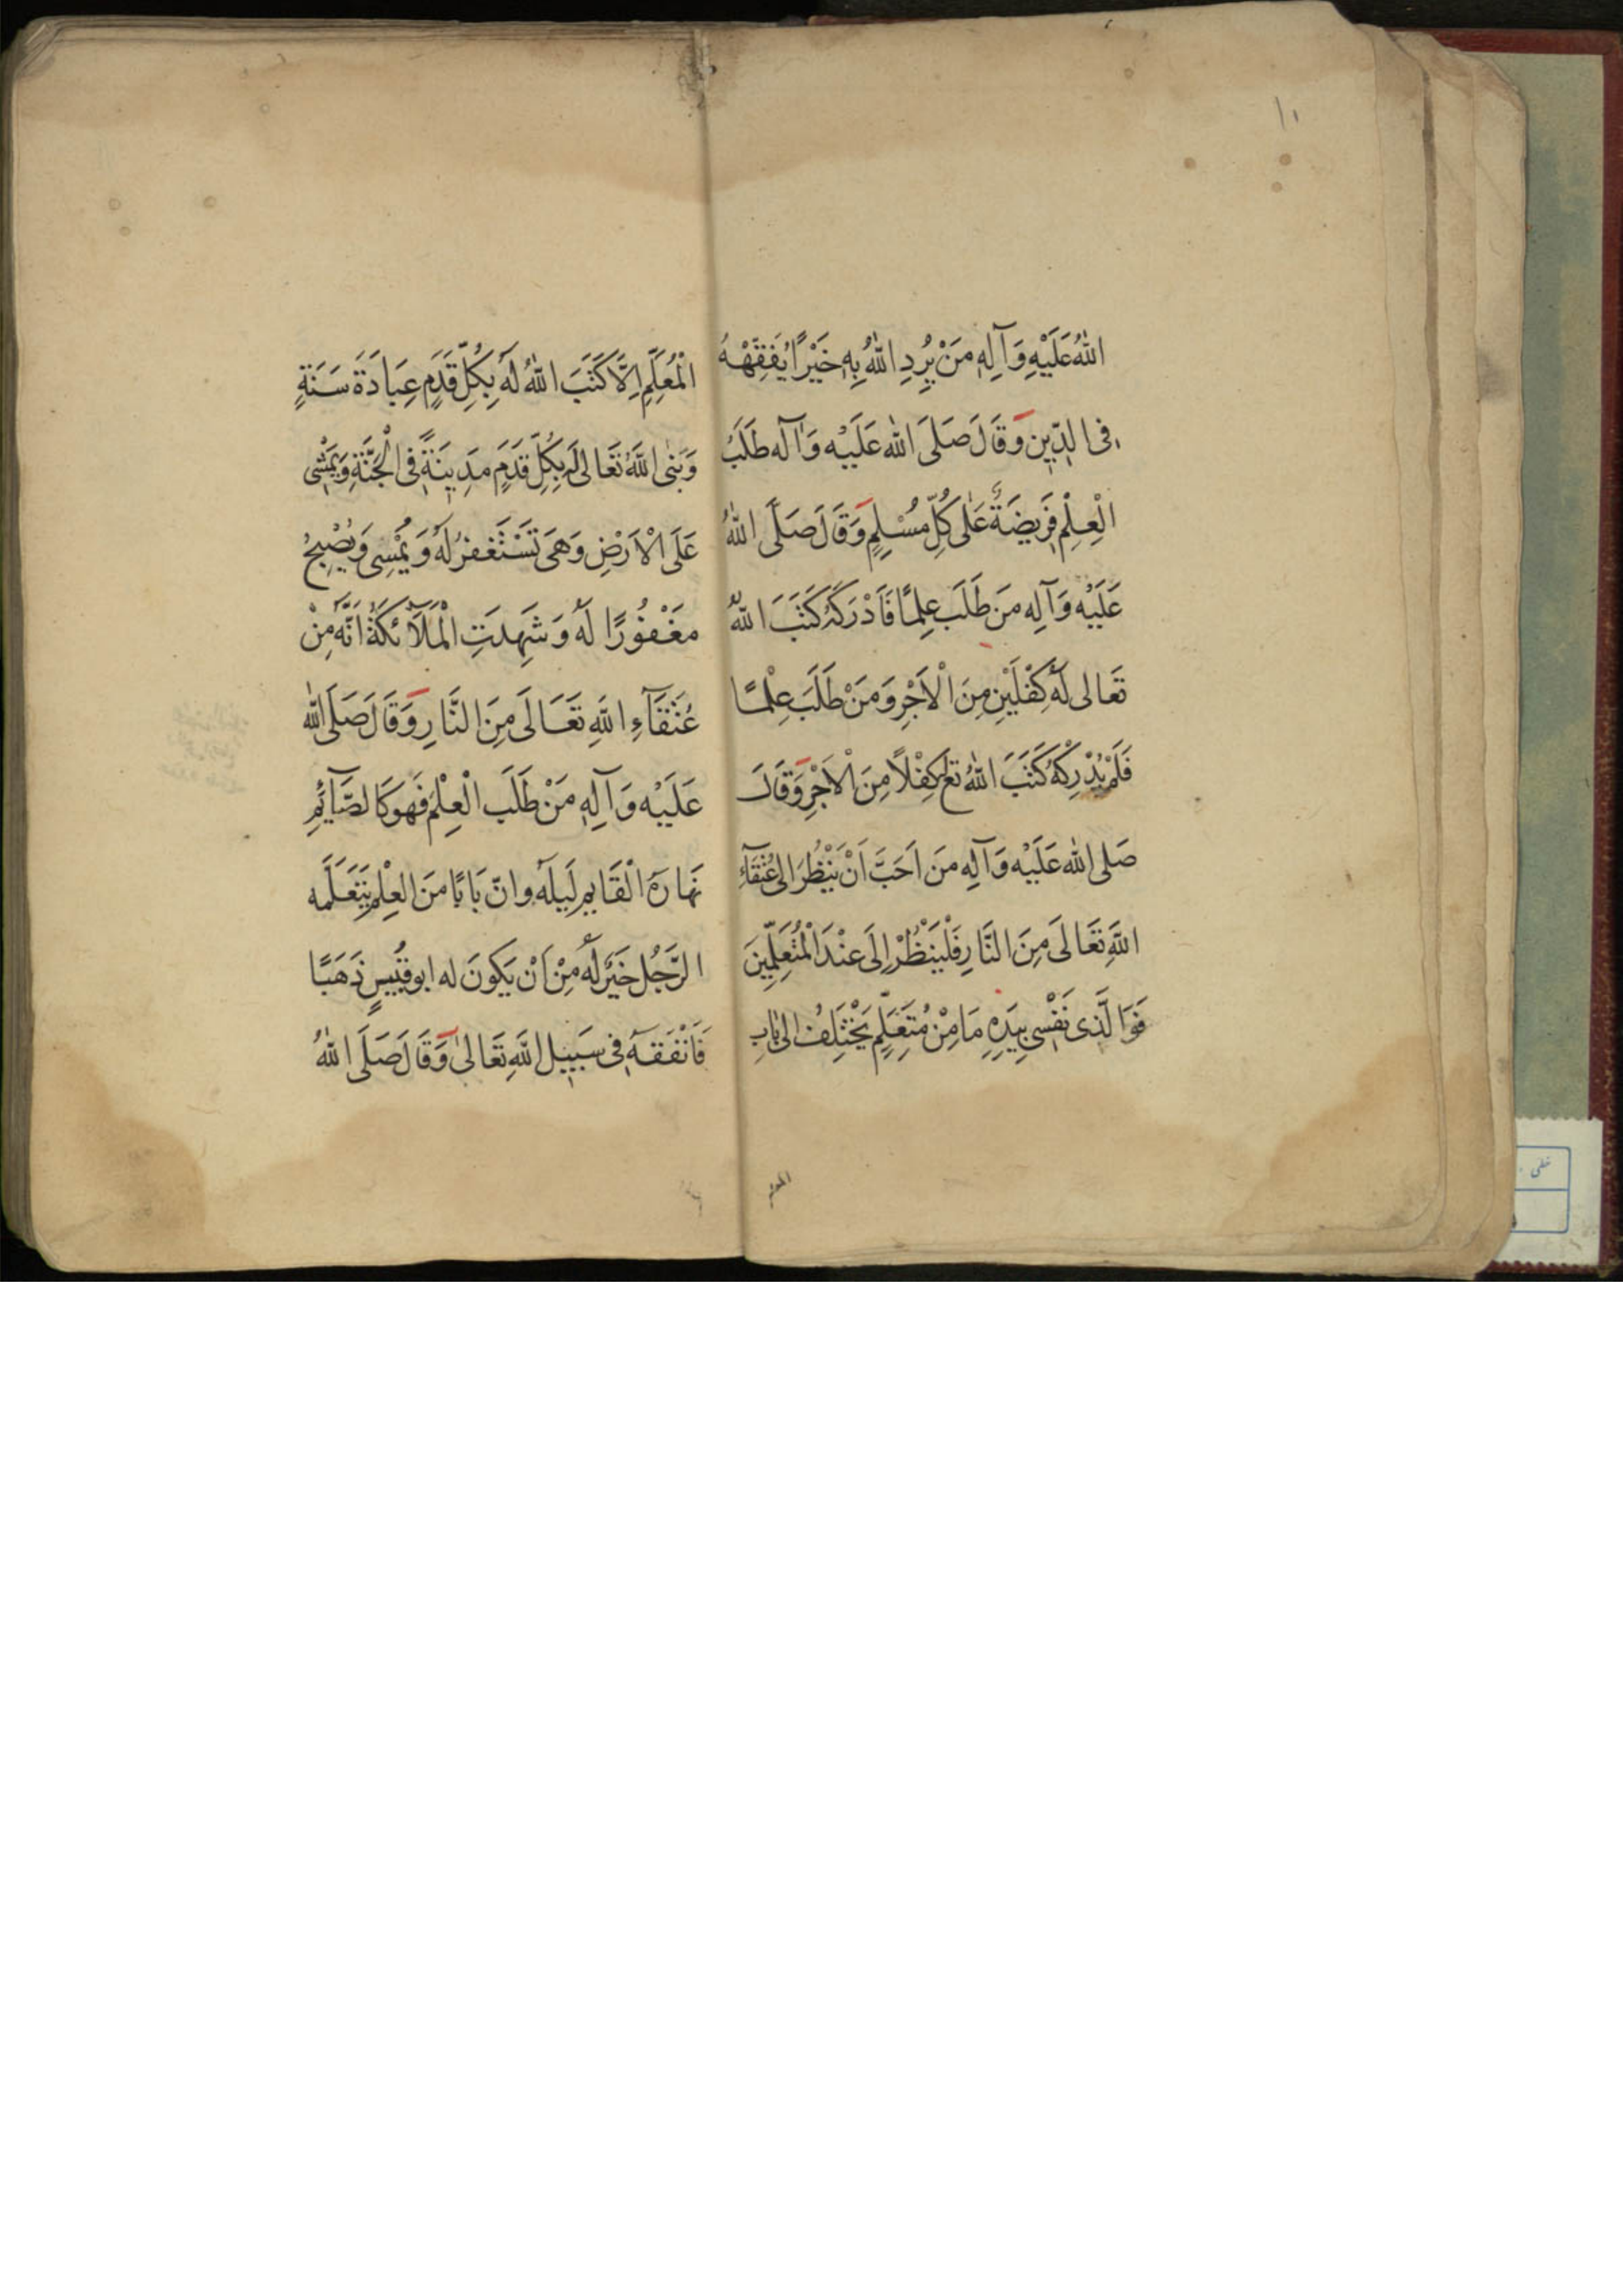 ١٠
اللهُ عَلَيْهِ وَآلِهِ مَنْ يُرِدِ اللهُ بِهِ خَيْرًا يُفَقِّهْهُ
فِى الدِّينِ وَقَالَ صَلَى الله عَلَيْه وَآله طَلَبُ
الْعِلْمِ فَرِيضَةٌ عَلٰى كُلِّ مُسْلِمٍ وَقَالَ صَلَّى اللهُ
عَلَيْه وَآلِه مَن طَلَبَ عِلمًا فَاَدْرَكَهُ كَتَبَ اللهُ
تَعَالى لَهُ كِفْلَيْنِ مِنَ الْاَجْرِ وَمَنْ طَلَبَ عِلْمًا
فَلَمْ يُدْرِكْهُ كَتَبَ اللهُ تع كِفْلًا مِنَ الْاَجْرِ وَقَالَ
صَلى الله عَلَيْه وَآلِه مَن اَحَبَّ اَنْ يَنْظُرَ الى عُتَقَآءِ
اللهِ تَعَالَى مِنَ النَّارِ فَلْيَنْظُرْ اِلَى عِنْدَ الْمُتَعَلِّمِينَ
فَوَالَّذى نَفْسى بِيَدِهِ مَا مِنْ مُتَعَلِّمٍ يَخْتَلِفُ اِلىٰ بَابِ
المعلم
الْمُعَلِّمِ اِلَّا كَتَبَ اللهُ لَهُ بِكُلِّ قَدَمٍ عِبَادَةَ سَنَةٍ
وَبَنٰى اللهُ تَعَالىٰ لَهُ بِكُلِّ قَدَمٍ مَدِينَةً فِى الْجَنَّةِ وَيَمْشِى
عَلَى الْاَرْضِ وَهىَ تَسْتَغْفِرُ لَهُ وَيُمْسِى وَيُصْبِحُ
مَغْفُورًا لَهُ وَشَهِدَتِ الْمَلَآئكَةُ اَنَّه مِنْ
عُتَقَآءِ اللهِ تَعَالَى مِنَ النَّارِ وَقَالَ صَلَى الله
عَلَيْه وَآلِهِ مَنْ طَلَبَ الْعِلْمَ فَهو كَالصَّآئِمِ
نَهَارَهُ الْقَايِمِ لَيلَهُ وانّ بَابًا مِنَ العِلْمِ يَتَعَلَّمه
الرَّجُل خَيْرٌ لَهُ مِنْ اَنْ يَكونَ له ابو قُبَيسٍ ذَهَبًا
فَاَنْفَقَهُ فى سَبِيلِ اللهِ تَعَالىٰ وَقَالَ صَلَى اللهُ
خطى